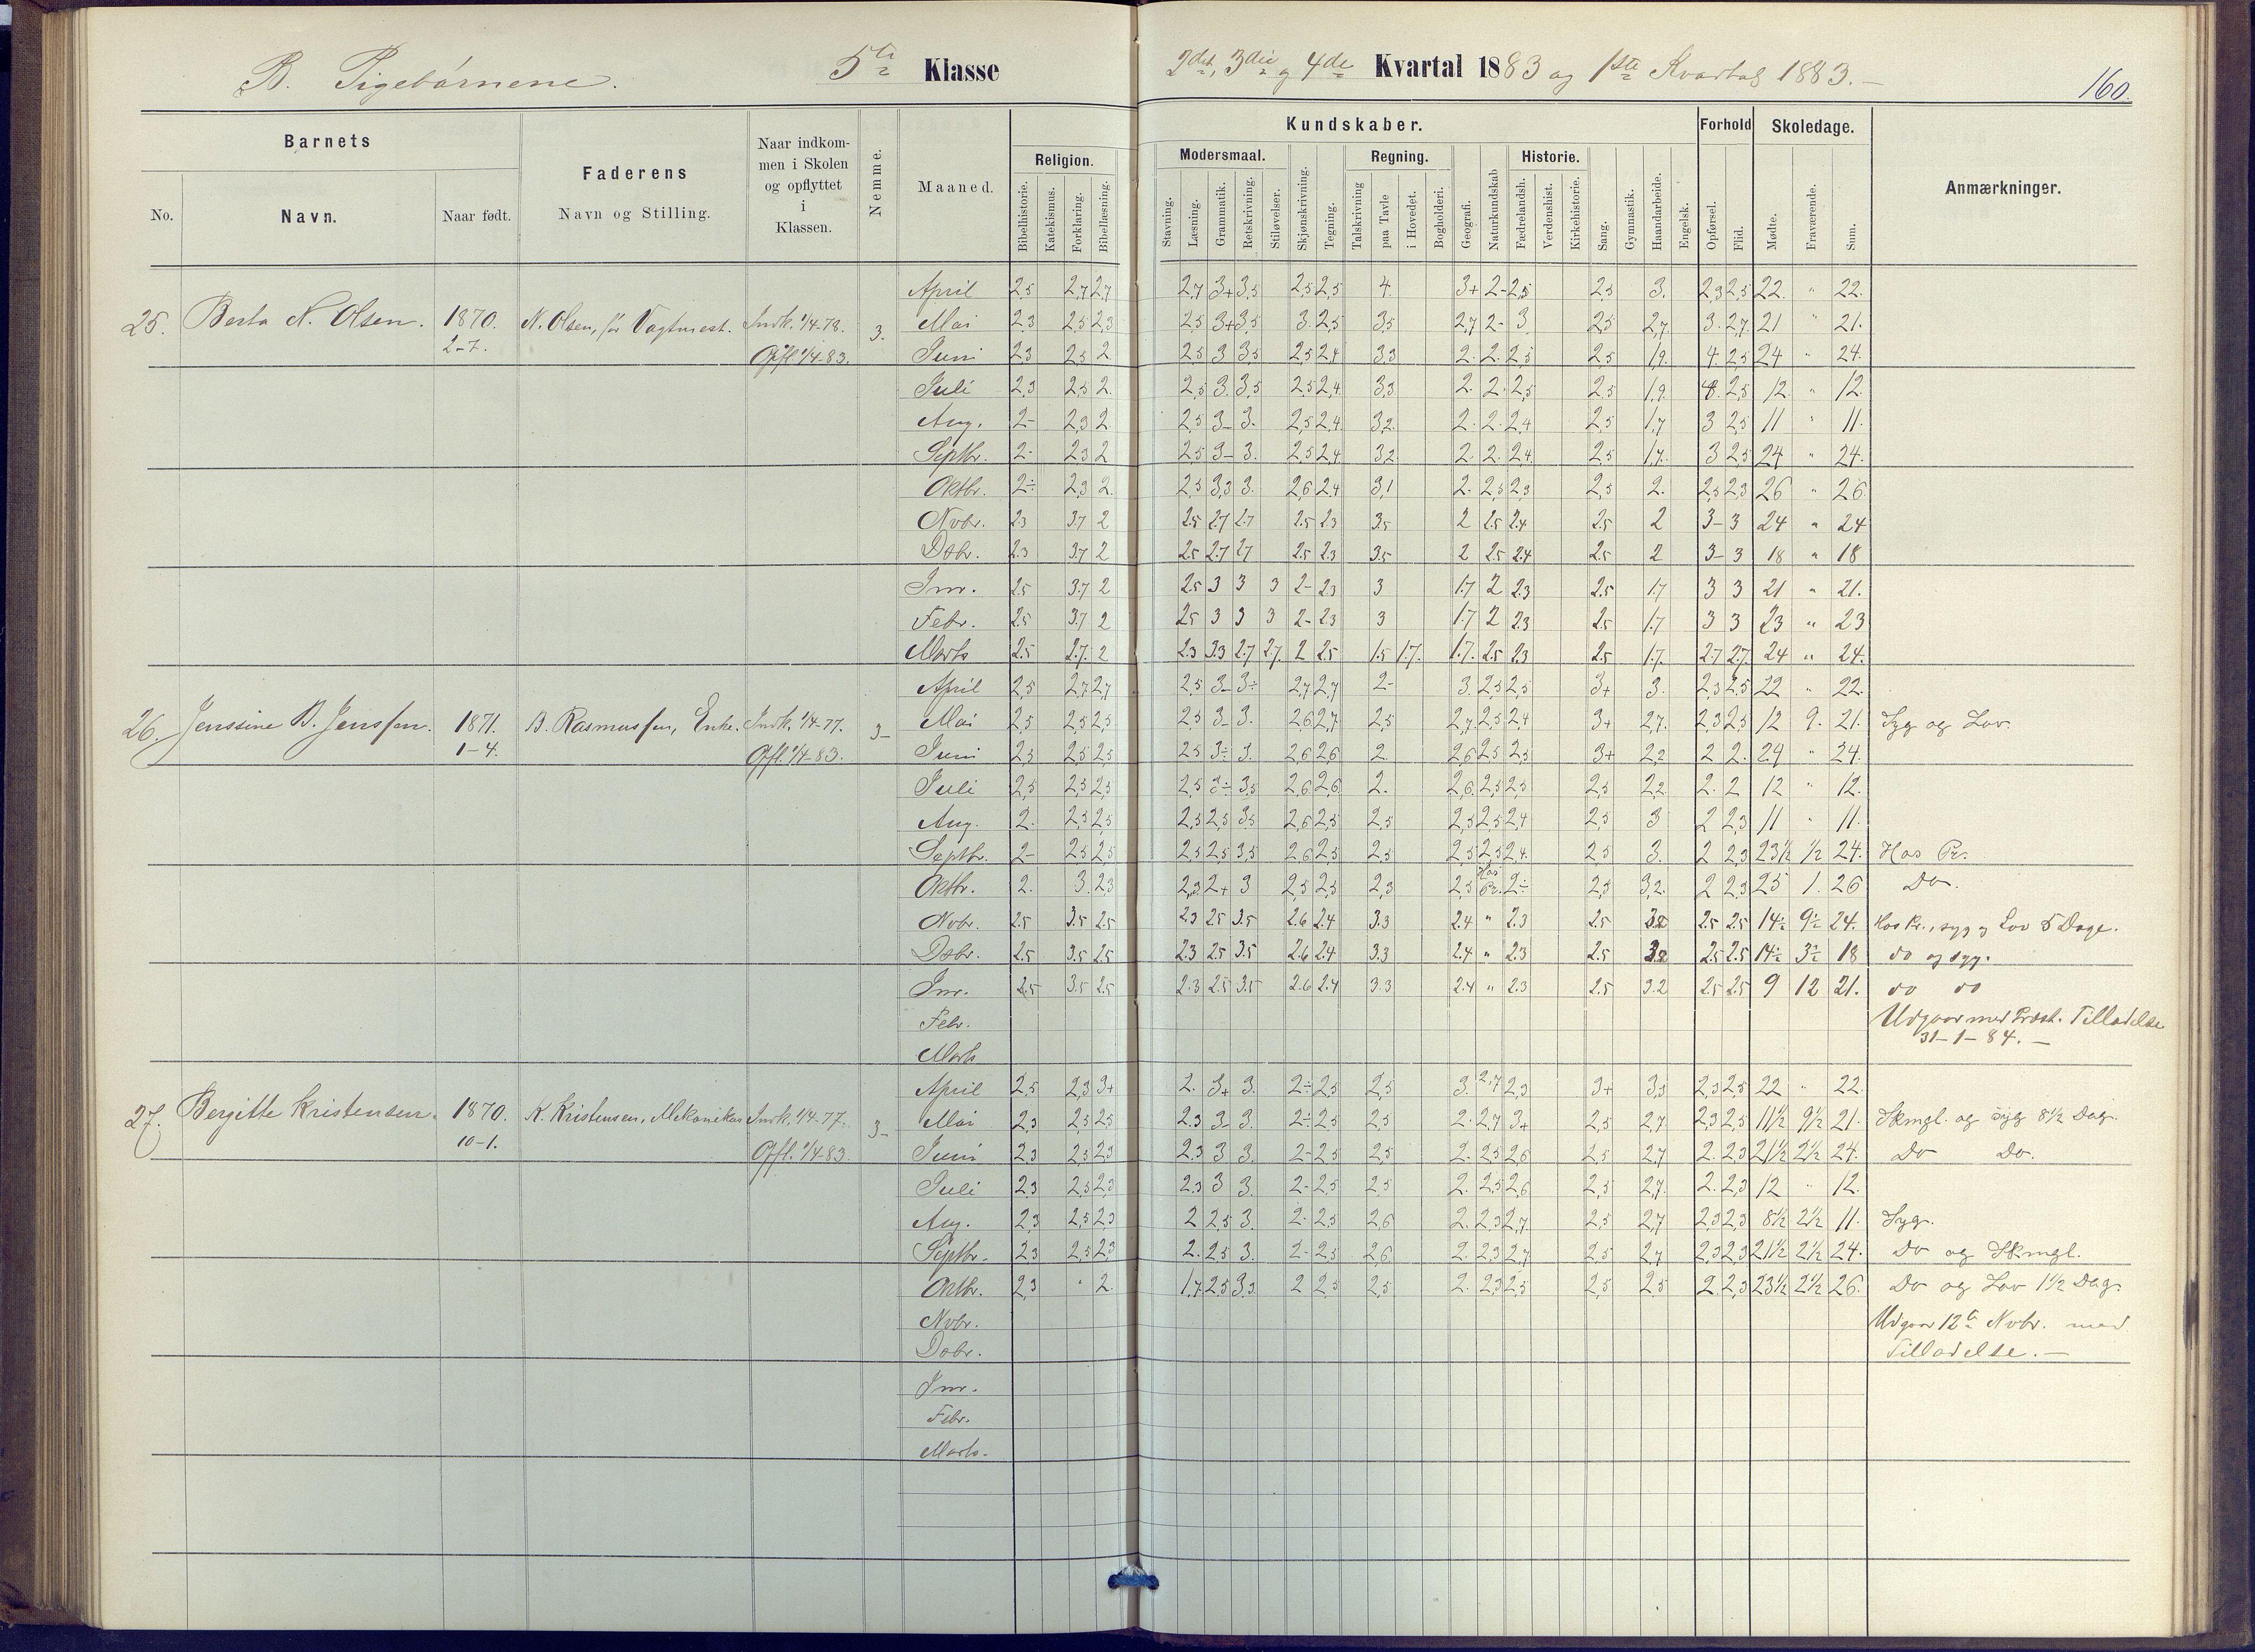 B. Pigebørnene.
5te Klasse
2det, 3die og 4de Kvartal 1883 og 1ste Kvartal 1883.-
160.
Barnets
No.
Navn.
Naar født.
Faderens
Navn og Stilling.
Naar indkom-
men i Skolen
og opflyttet
i
Klassen.
Nemme.
Maaned.
Kundskaber.
Religion.
Bibelhistorie. Katekismus. Forklaring. Bibellæsning.
Modersmaal.
Stavning. Læsning. Grammatik. Retskrivning. Stiløvelser.
Skjønskrivning. Tegning.
Regning.
Talskrivning paa Tavle i Hovedet. Bogholderi.
Geografi. Naturkundskab
Historie.
Fædrelandsh. Verdenshist. Kirkehistorie.
Sang. Gymnastik. Haandarbeide. Engelsk.
Forhold
Opførsel. Flid.
Skoledage.
Møtte. Fraværende. Sum.
Anmærkninger.
25. Berta N. Olsen. 1870. 2-7. N. Olsen, før Vagtmest. Indk. 1/4-78. Opfl. 1/4-83. 3.
April 2,5 2,7 2,7 2,7 3+ 3,5 2,5 2,5 4. 3+ 2- 2,5 2,5 3. 2,3 2,5 22. " 22.
Mai 2,3 2,5 2,3 2,5 3+ 3,5 3. 2,5 3,5 2,7 2- 3. 2,5 2,7. 3. 2,7. 21 " 21.
Juni 2,3 2,5 2. 2,5 3 3,5 2,5 2,4 3,3 2. 2. 2,5 2,5 1,9. 4. 2,5 24 " 24.
Juli 2,3 2,5 2. 2,5 3. 3,5 2,5 2,4. 3,3 2. 2. 2,5 2,5 1,9. 2,5 12. " 12.
Aug. 2- 2,3 2. 2,5 3- 3. 2,5 2,4. 3,2. 2. 2. 2,4 2,5 1,7 3 2,5 11 " 11.
Septbr. 2- 2,3 2 2,5 3- 3. 2,5 2,4 3,2. 2. 2. 2,4. 2,5 1,7. 3 2,5 24 " 24.
Oktbr. 2÷ 2,3 2. 2,5 3,3 3. 2,6 2,4 3,1 2. 2,5 2,3 2,5 2. 2,5 2,3 26 " 26.
Nvbr. 2.3 3.7 2 2.5 2.7 2.7 2.5 2.3 3.5 2 2.5 2.4 2.5 2 3- 3 24 " 24
Dsbr. 2.3 3.7 2 2.5 2.7 2.7 2.5 2.3 3.5 2 2.5 2.4 2.5 2 3- 3 18 " 18
Jnr. 2.5 3.7 2 2.5 3 3 3 2- 2.3 3 1.7 2 2.3 2.5 1.7 3 3 21 " 21.
Febr. 2.5 3.7 2 2.5 3 3 3 2- 2.3 3 1.7 2 2.3 2.5 1.7 3 3 23 " 23
Marts 2.5 2.7. 2 2.3 3.3 2.7 2.7. 2 2.5 1.5 1.7. 1.7. 2.5 2.3 2.5 1.7. 2.7 2.7. 24 " 24.
26. Jenssine B. Jenssen. 1871. 1-4. B. Rasmussen, Enke. Indk. 1/4-77. Opfl. 1/4-83. 3-
April 2,5 2,7 2,7 2,5 3- 3÷ 2,7 2,7 2- 3. 2,5 2,5 3+ 3. 2,3 2,5 22 " 22.
Mai 2,5 2,5 2,5 2,5 3- 3. 2,6 2,7. 2,5 2,7. 2,5 2,4 3+ 2,7. 2,3 2,5 12 9. 21. Syg og Lov.
Juni 2,5 2,5 2,5 2,5 3÷ 3. 2,6 2,6 2. 2,6 2,5 2,5 3+ 2,2 2 2. 24 " 24.
Juli 2,5 2,5 2,5 2,5 3÷ 3,5 2,6 2,6 2. 2,6. 2,5 2,5 2,5 2,2. 2. 2 12 " 12.
Aug. 2. 2,5 2,5 2,5 2,5 3,5 2,6 2,5 2,5 2,5 2,5 2,4 2,5 3 2 2,3 11 " 11.
Septbr. 2- 2,5 2,5 2,5 2,5 3,5 2,6 2,5 2,5 2,5 2,5 2,4. 2,5 3. 2 2,3 23½ ½ 24. Hos Pr.
Oktbr. 2. 3. 2,3 2,3 2+ 3 2,5 2,5 2,3 2,5 Hos Pr. 2÷ 2,5 3,2. 2 2,3 25 1. 26 Do.
Nvbr. 2.5 3.5 2.5 2.3 2.5 3.5 2.6 2.4 3.3 2.4 " 2.3 2.5 3.2 2.5 2.5 14½ 9½ 24. Hos Pr., syg og Lov 5 Dage.
Dsbr. 2.5 3.5 2.5 2.3 2.5 3.5 2.6 2.4 3.3 2.4 " 2.3 2.5 3.2 2.5 2.5 14½ 3½ 18 do og syg.
Jnr. 2.5 3.5 2.5 2.3 2.5 3.5 2.6 2.4 3.3 2.4 " 2.3 2.5 3.2 2.5 2.5 9 12 21. do do
Febr. Udgaar med Præst. Tilladelse
31-1-84.-
Marts
27. Bergitte Kristensen. 1870. 10-1. K. Kristensen, Mekanikus Indk. 1/4-77. Opfl. 1/4-83. 3-
April 2,5 2,3 3+ 2. 3+ 3. 2÷ 2,5 2,5 3. 2,7 2,3 3+ 3,3 2,3 2,5 22 " 22.
Mai 2,3 2,5 2,5 2,3 3- 3. 2÷ 2,5 2,5 2. 2,7 3+ 2,5 2,7 2,3 2,5 11½ 9½ 21. Skmgl. og syg 8½ Dag.
Juni 2,3 2,5 2,3 2,3 3 3. 2- 2,5 2,5 2. 2,5 2,6 2,5 2,7 2. 2,3 21½ 2½ 24. Do Do.
Juli 2,3 2,5 2,3 2,3 3 3. 2- 2,5 2,5 2. 2,5 2,6 2,5 2,7. 2. 2,3 12 " 12.
Aug. 2,3 2,5 2,3 2 2,5 3. 2- 2,5 2,6 2. 2,3 2,7 2,5 2,7 2,3 2,3 8½ 2½ 11. Syg.
Septbr. 2,3 2,5 2,3 2. 2,5 3. 2- 2,5 2,6 2. 2,3 2,7 2,5 2,7 2,3 2,3 21½ 2½ 24. Do og Skmgl.
Oktbr. 2,3 " 2. 1,7. 2,5 3,3. 2 2,5 2,5 2. 2,3 2,5 2,5 2,5 2. 2,3 23½ 2½ 26. Do og Lov 1½ Dag.
Nvbr. Udgaar 12te Nvbr. med
Dsbr. Tilladelse.-
Jnr.
Febr.
Marts.